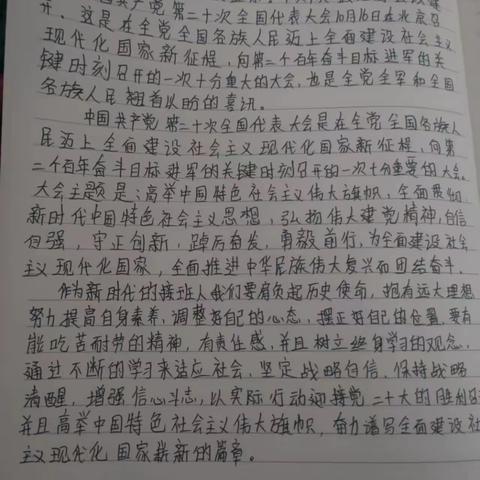 国共产党第二十次全国代表大会
开。这是在全党全国各族人民迈上全面建设社会主义
现代化国家新征程,向第二个百年奋斗目标进军的关
键时刻召开的一次十分重大的大会,也是全党全军和全国
各族人民翘首以盼的喜讯。
中国共产党第二十次全国代表大会是在全党全国各族人
民迈上全面建设社会主义现代化国家新征程,向第
二个百年奋斗目标进军的关键时刻召开的一次十分重要的大会。
大会主题是:高举中国特色社会主义伟大旗帜,全面贯彻
新时代中国特色社会主义思想,弘扬伟大建党精神,自信
自强,守正创新,踔厉奋发,勇毅前行,为全面建设社会
主义现代化国家,全面推进中华民族伟大复兴而团结奋斗.
作为新时代的接班人我们要肩负起历史使命,抱有远大理想
努力提高自身素养,调整好自己的心态,摆正好自己的位置.要有
能吃苦而耐劳的精神,有责任感,并且树立终身学习的观念,
通过不断的学习来适应社会,坚定战略自信,保持战略
清醒,增强信心斗志,以实际行动迎接党二十大的胜利
并且高举中国特色社会主义伟大旗帜,奋力谱写全面建设社
主义现代化国家崭新的篇章。